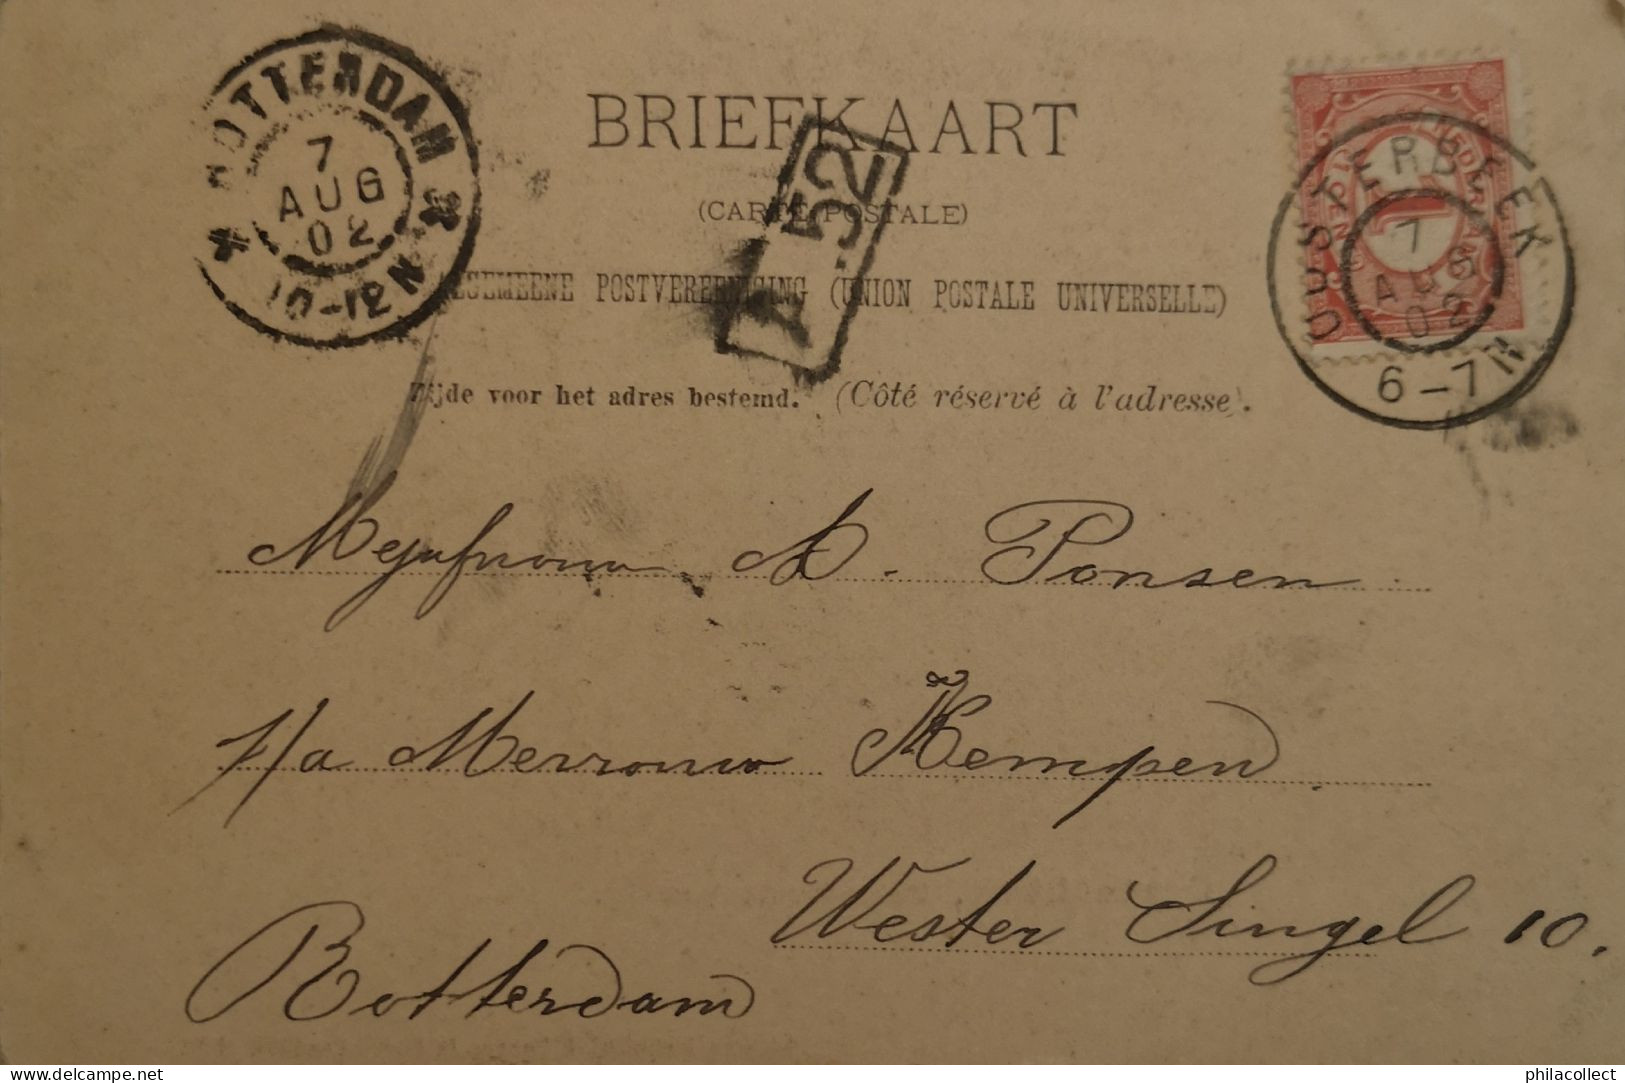 ROTTERDAM
7
AUG
02
10-12N
BRIEFKAART
(CARTE POSTALE)
ALGEMEENE POSTVEREENIGING (UNION POSTALE UNIVERSELLE)
Zijde voor het adres bestemd. (Côté réservé à l'adresse).
A.52
1
OOSTERBEEK
7
AUG
02
6-7N
Mejufrouw A. Ponsen
p/a Mevrouw Kempen
Wester Singel 10.
Rotterdam
delcampe.net
philacollect